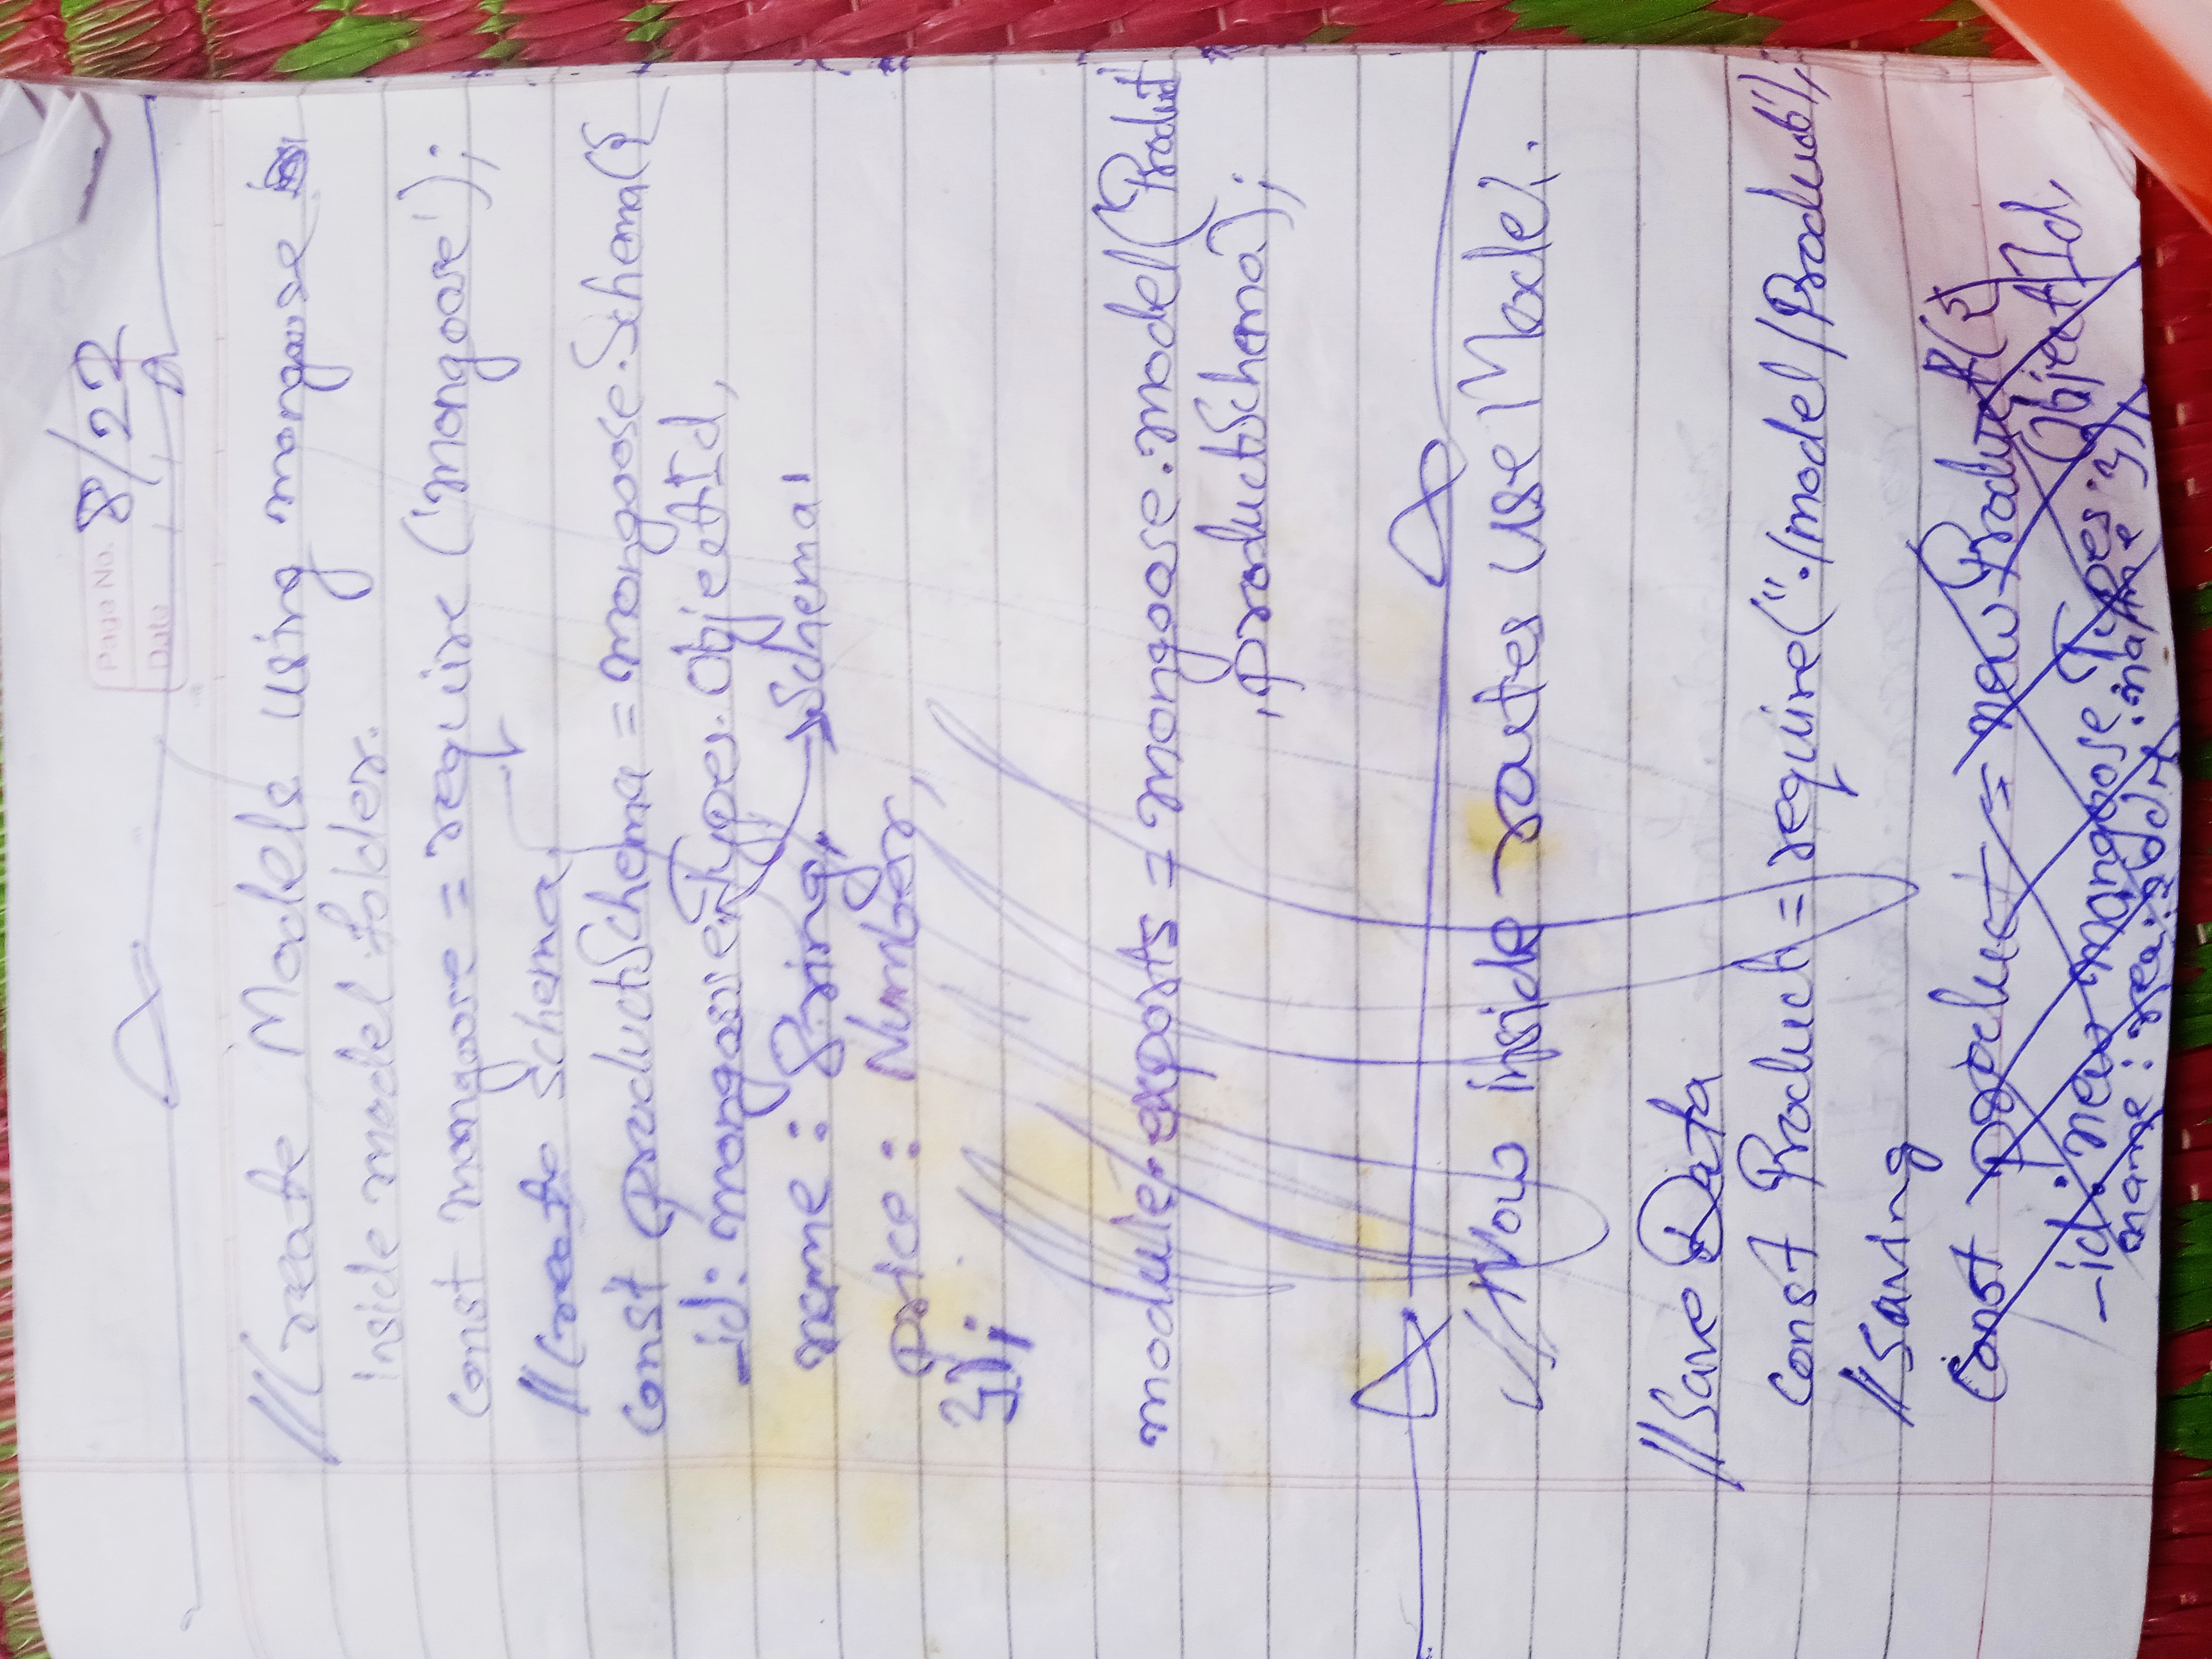 Page No. 8/22
Date
//Create Models using mongoose
inside model folder.
const mongoose = require ('mongoose');
//Create Schema
const productSchema = mongoose.Schema({
_id: mongoose.Types.ObjectId,
Schema
name: String,
Price: Number,
});
module.exports = mongoose.model('Product'
,productSchema);
//Now inside routes use Model.
//Save Data
const Product = require("./model/Product");
//Saving
Const product = new Product({
_id: new mongoose.Types.ObjectId,
name: req.body.name